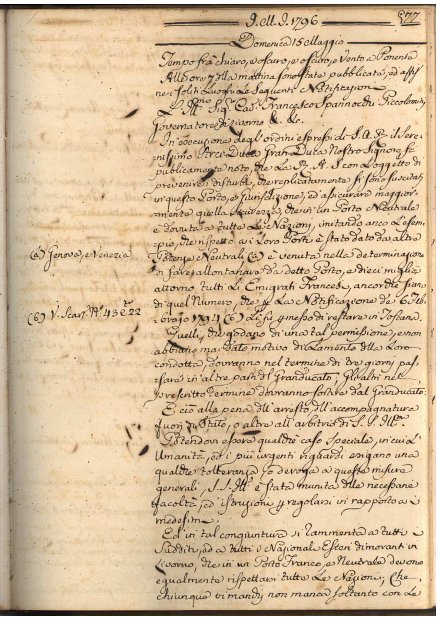 J. M. J. 1796
577
Domenica 15 Maggio
Tempo frà chiaro, e oscuro, e oscuro, e Vento a Ponente
All'Ore 7 della mattina sono state pubblicate, ed affis-
se ai soliti Luoghi Le Seguenti Notificazioni
L'Ill.mo Sig.r Cav.r Francesco Spannocchi Piccolomini
Governatore di Livorno &c. &c.
In esecuzione degl'ordini espressi di S.A.R. il Sere-
nissimo Arci-Duca Gran Duca Nostro Signore, fà
pubblicamente noto, che La R. A. S. con L'oggetto di
prevenire i disturbi, che replicatamente si sono suscitati
in questo Porto, e Giurisdizione, ed assicurare maggior-
mente quella Sicurezza, che in un Porto Neutrale
è dovuta a tutte Le Nazioni, imitando anco L'esem-
pio, che rispetto ai Loro Porti è stato dato da altre
Potenze Neutrali (a) è venuta nella determinazione
di fare allontanare da detto Porto, e dieci miglia
attorno tutti Li Emigrati Francesi, ancorchè siano
di quel Numero, che p. La Notificazione de' 6 Feb-
braio 1794 (b) è Lì si permesso di restare in Toscana.
Quelli, che godano di una tal permissione, e non
abbiano mai dato motivo di Lamento della Loro
condotta, dovranno nel termine di tre giorni pas-
sare in altre parti del Granducato; Gl'altri nel
prescritto termine dovranno sortire dal Granducato;
E ciò alla pena dell'arresto, dell'accompagnatura
fuori di Stato, o altre all'arbitrio di S.S. Ill.ma
Potendovi essere qualche caso Speciale, in cui L'
Umanità, ed i più urgenti riguardi esigano una
qualche tolleranza, ò deroga a queste misure
generali, S.S. Ill.ma è stata munita delle necessarie
facoltà, ed istruzioni p. regolarsi in rapporto a i
medesimi.
Ed in tal congiuntura si rammenta a tutti i
Sudditi, ed a tutti i Nazionali Esteri dimoranti in
Livorno, che in un Porto Franco, e Neutrale devono
egualmente rispettarsi tutte Le Nazioni, Che
chiunque vi manchi, non manca soltanto con Le
(a) Genova, e Venezia
(b) V. Scarf. N.° 43 e 22